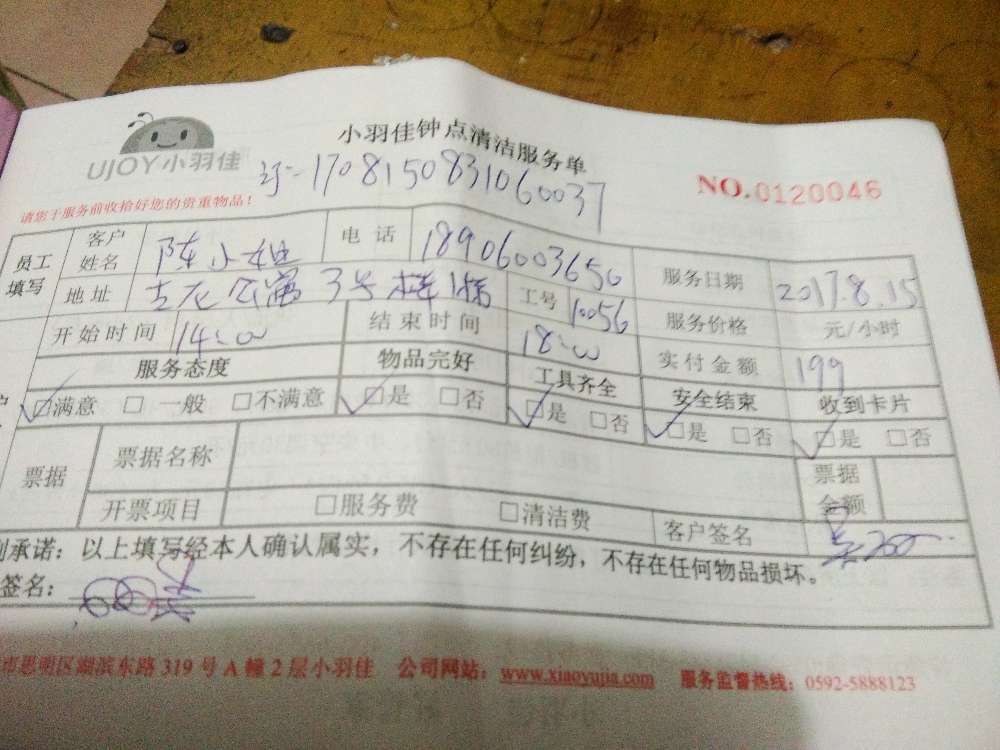 UJOY小羽佳
小羽佳钟点清洁服务单
1708150831060037
NO.0120046
请您于服务前收拾好您的贵重物品！
员工填写 客户姓名 陈小姐 电话 18906003650 服务日期 2017.8.15
地址 3号楼 工号 10056 服务价格 元/小时
开始时间 14:00 结束时间 18:00 实付金额 199
服务态度 物品完好 工具齐全 安全结束 收到卡片
☑满意 □一般 □不满意 ☑是 □否 ☑是 □否 ☑是 □否 ☑是 □否
票据 票据名称 票据金额
开票项目 □服务费 □清洁费 客户签名
承诺：以上填写经本人确认属实，不存在任何纠纷，不存在任何物品损坏。
签名：
市思明区湖滨东路319号A幢2层小羽佳 公司网站：www.xiaoyujia.com 服务监督热线：0592-5888123